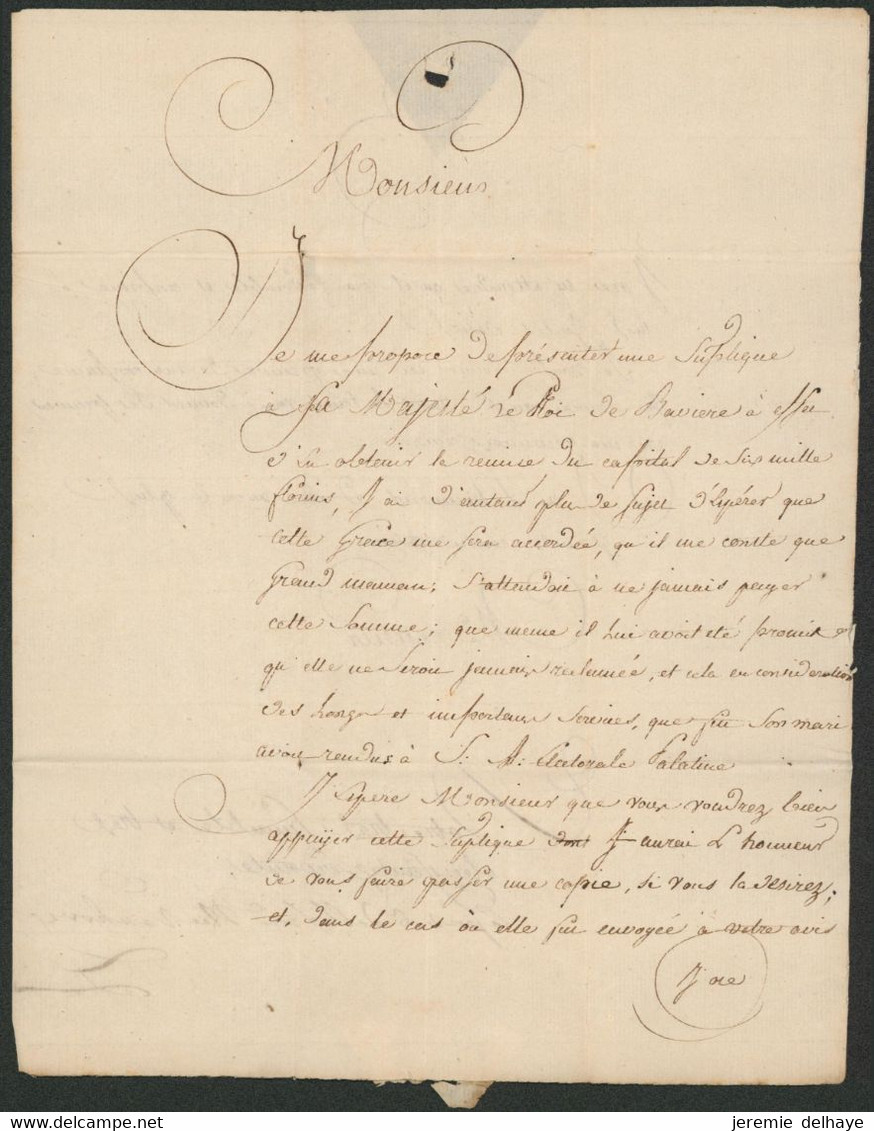 Monsieur
Je me propose de présenter une Suplique
à Sa Majesté le Roi de Baviere à effet
d'en obtenir la remise du capital de six mille
florins, J'ai d'autant plus de sujet d'ésperer que
cette Grace me sera accordée, qu'il me conste que
Grand maman; s'attendoit à ne jamais payer
cette somme; que meme il lui avoit été promis
qu'elle ne seroit jamais reclamée, et cela en consideration
des longs et importans services, que fu son mari
avoit rendus à S: A: Electorale Palatine
J'espere Monsieur que vous voudrez bien
appuyer cette suplique dont J'aurai L'honneur
de vous faire passer une copie, si vous la desirez;
et, dans le cas où elle fut envoyée à votre avis
J'ose
www.delcampe.net
jeremie delhaye